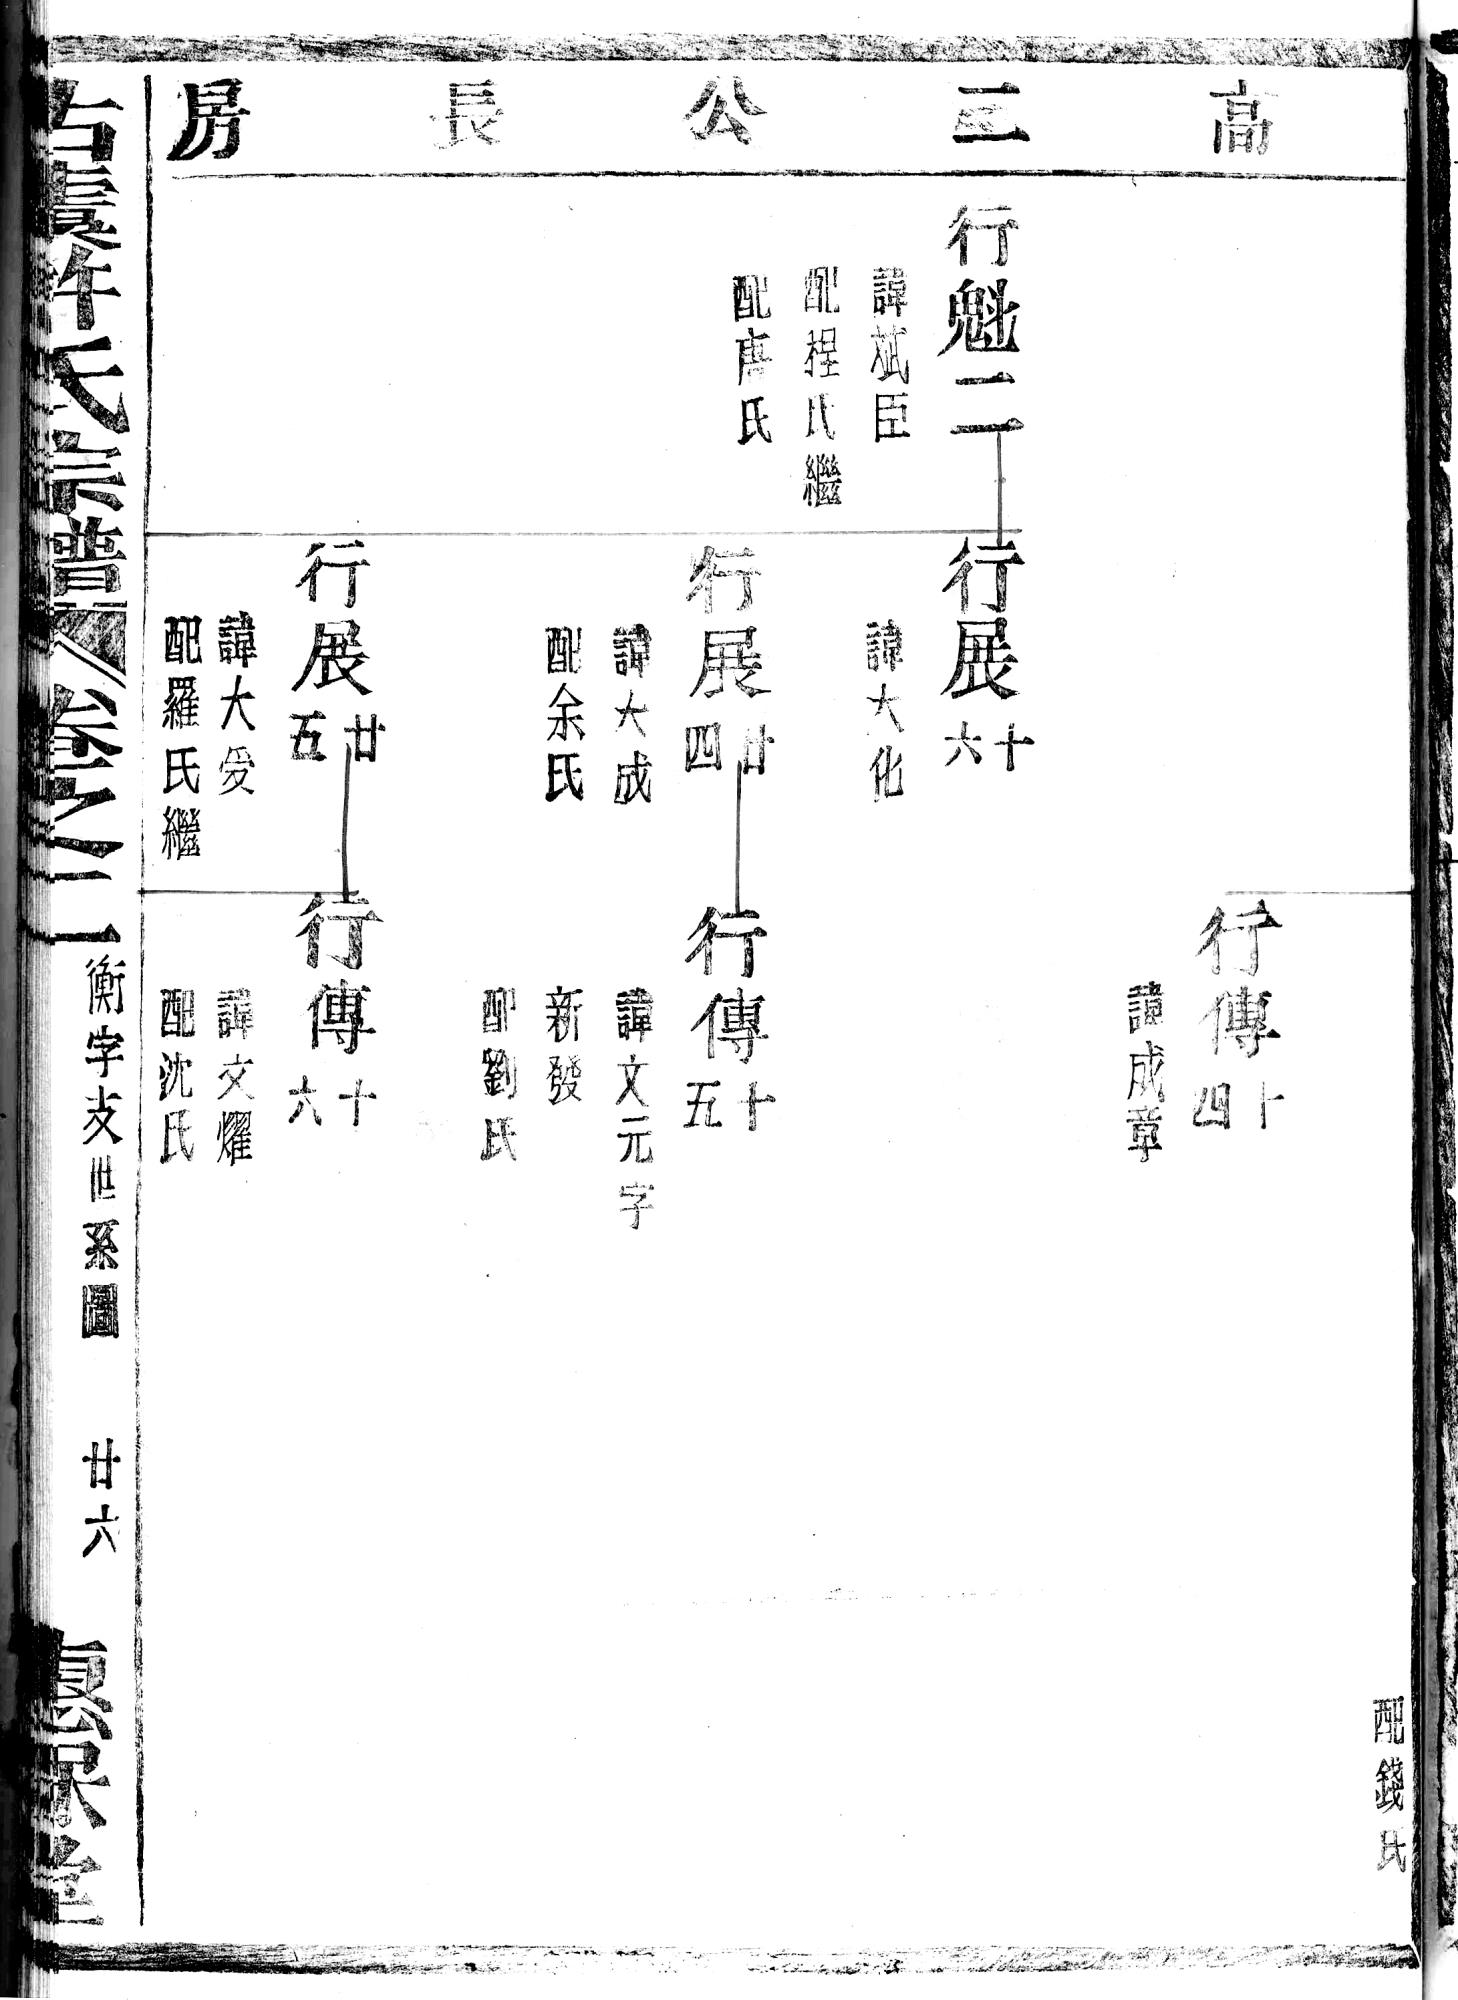 高三公長房
配錢氏
行傳十四
諱成章
行魁二
諱斌臣
配程氏繼
配唐氏
行展十六
諱大化
行展廿四
諱大成
配余氏
行傳十五
諱文元字
新發
配劉氏
行展廿五
諱大受
配羅氏繼
行傳十六
諱文燿
配沈氏
古虞許氏宗譜
卷之二
衡字支世系圖
廿六